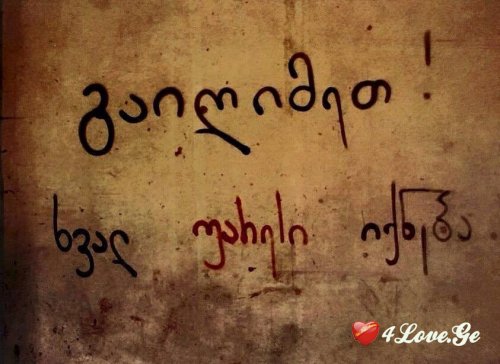 გაიღიმეთ !
ხვალ უარესი იქნება
4Love.Ge